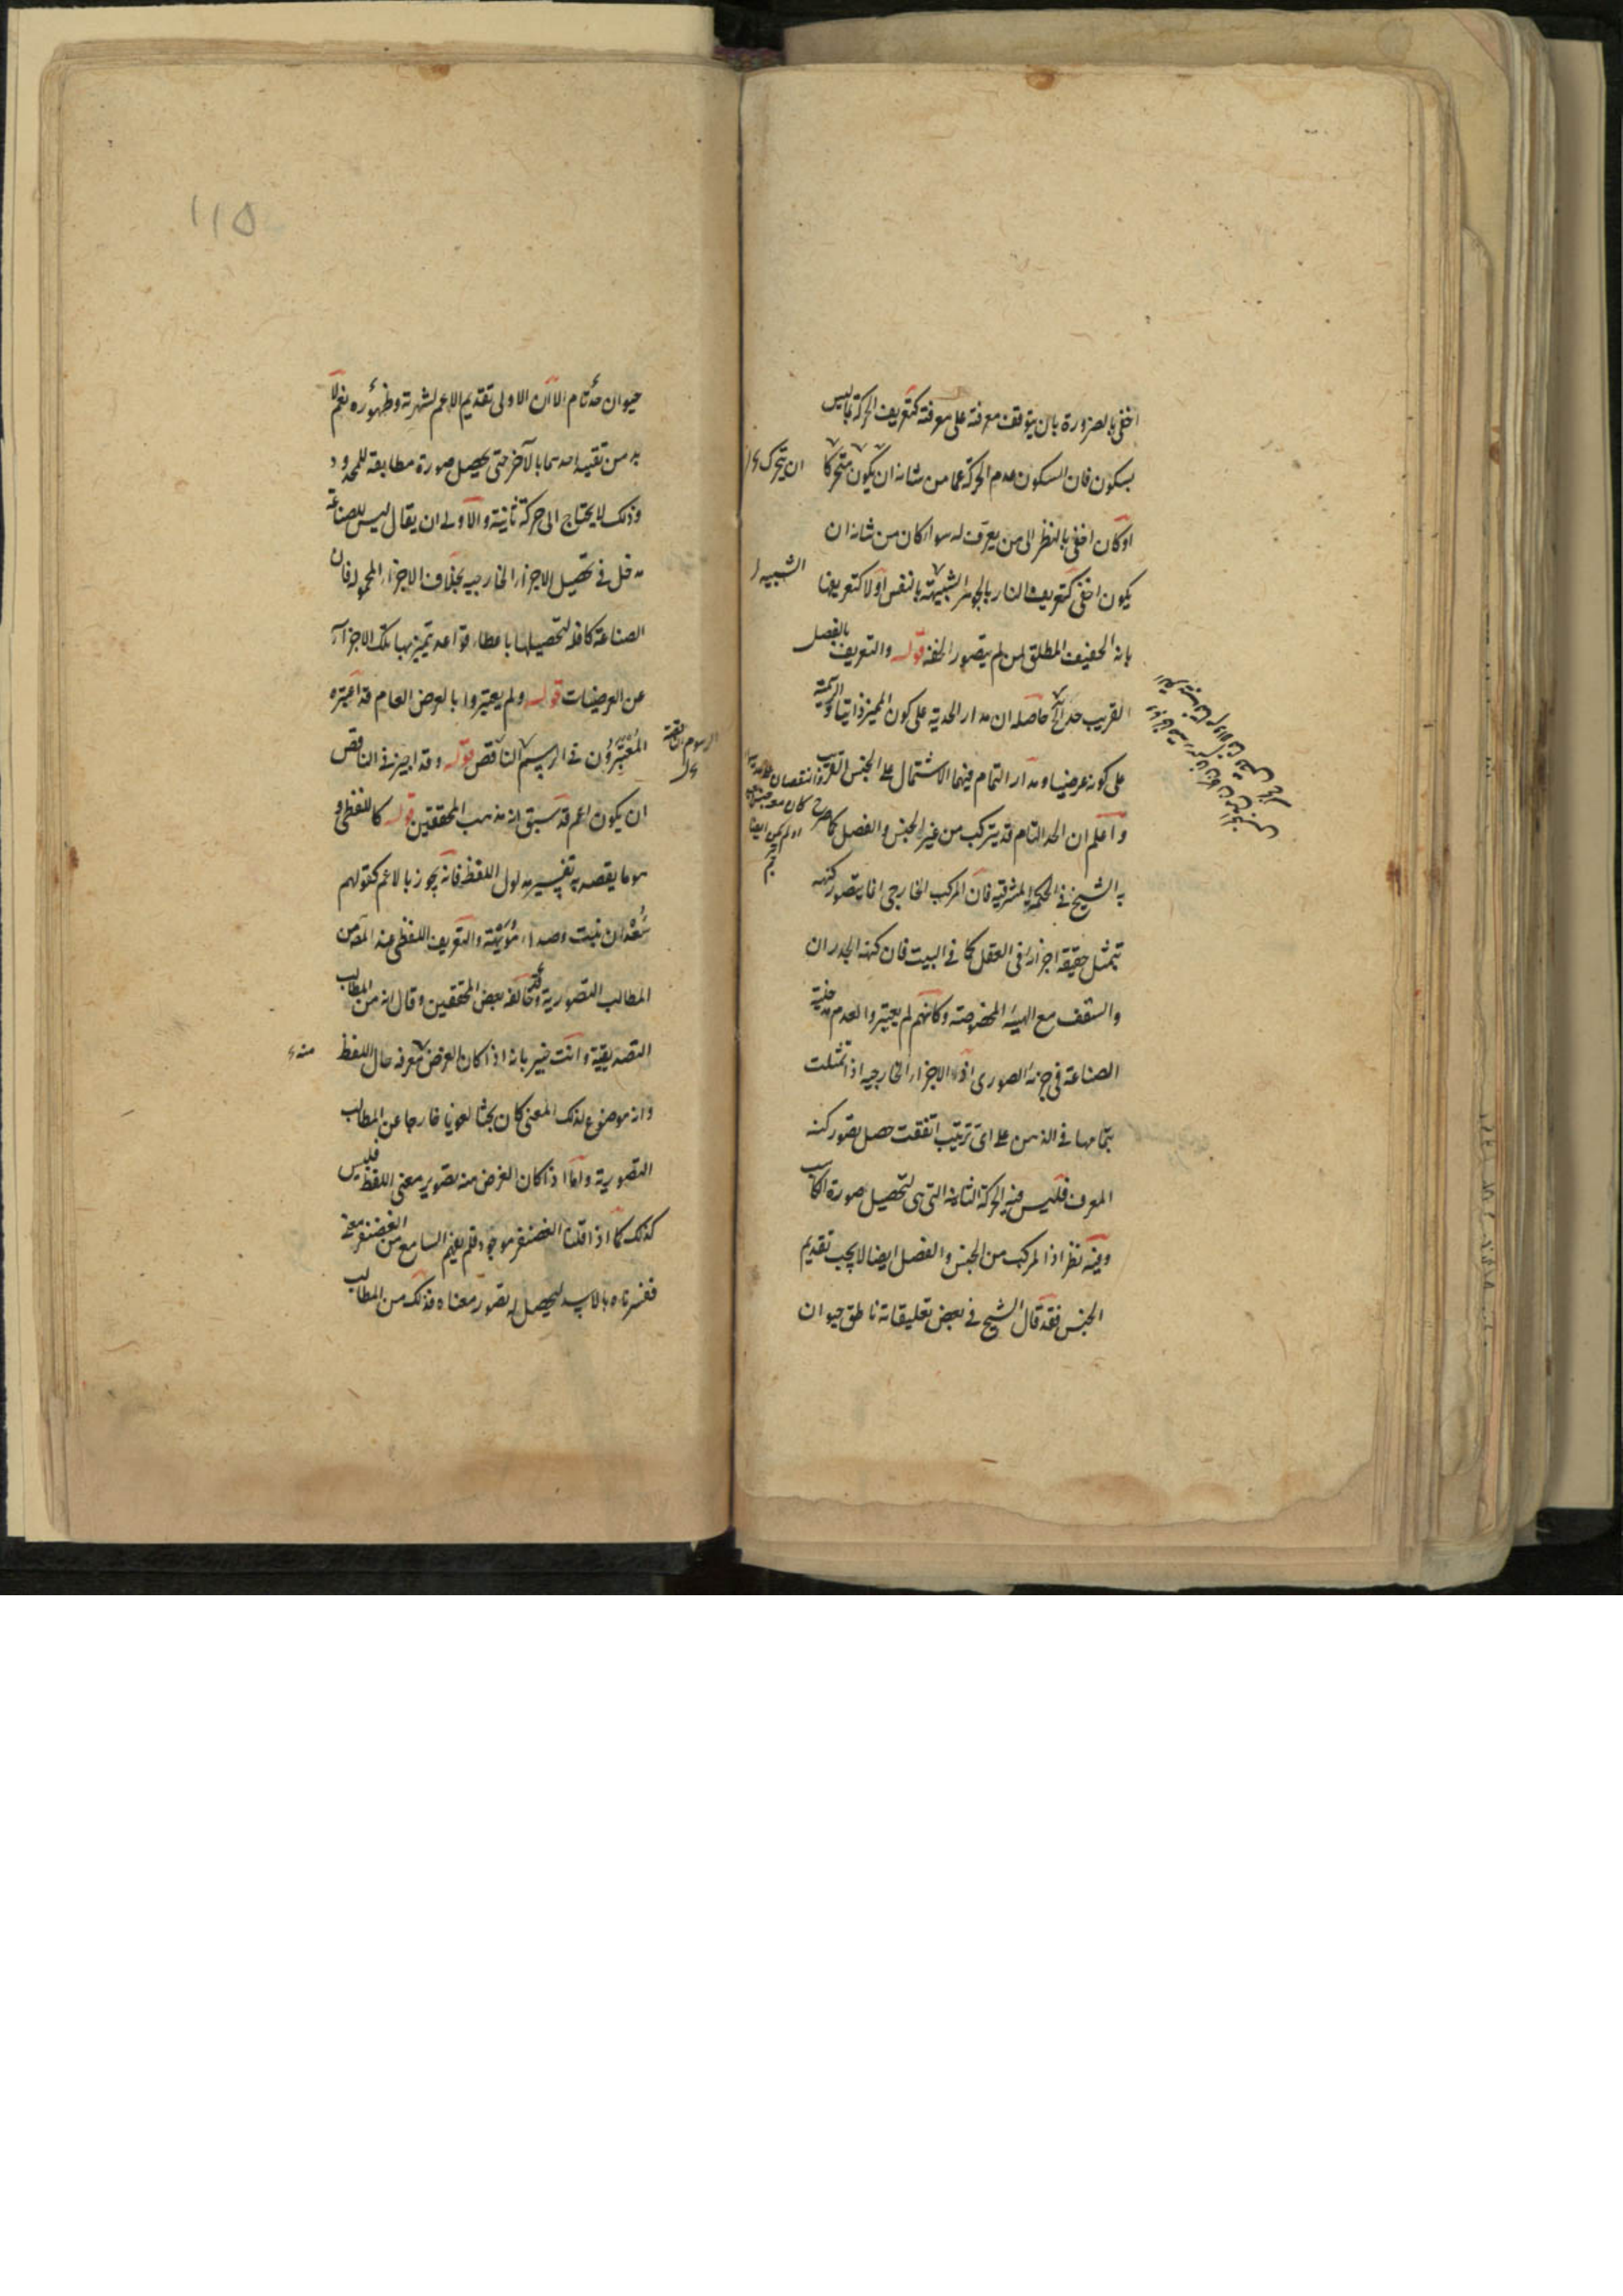 اخفى بالضرورة بان يتوقف معرفته على معرفته كتعريف الحركة بما ليس
بسكون فان السكون عدم الحركة عما من شانه ان يكون متحركا
ان يتحرك
او كان اخفى بالنظر الى من يعرف له سواء كان من شانه ان
يكون اخفى كتعريف النار بالجوهر الشبيهة بالنفس او لا كتعريفها
الشبيه
بانه الخفيف المطلق لمن لم يتصور الخفة قوله والتعريف بالفصل
القريب حد الخ حاصله ان مدار الحدية على كون المميز ذاتيا والرسمية
على كونه عرضيا ومدار التمام فيهما الاشتمال على الجنس القريب
واعلم ان الحد التام قد يتركب من غير الجنس والفصل كما صرح
به الشيخ في الحكمة المشرقية فان المركب الخارجي انما يتصور كنهه
بتمثل حقيقة اجزائه في العقل كما في البيت فان كنهه الجدران
والسقف مع الهيئة المخصوصة وكانهم لم يعتبروا لعدم مدخلية
الصناعة في جزئه الصوري اذ الاجزاء الخارجية اذا تمثلت
بتمامها في الذهن على اي ترتيب اتفقت حصل تصور كنه
المعرف فليس فيه الحركة الثانية التي هي لتحصيل صورة الكاسب
وفيه نظر اذ المركب من الجنس والفصل ايضا لا يجب تقديم
الجنس فقد قال الشيخ في بعض تعليقاته ناطق حيوان
١١٥
حيوان حد تام الا ان الاولى تقديم الاعم لشهرته وظهوره نعم لا
بد من تقييد احدهما بالآخر حتى يحصل صورة مطابقة للمحدود
وذلك لا يحتاج الى حركة ثانية والاولى ان يقال ليس للصناعة
مدخل في تحصيل الاجزاء الخارجيه بخلاف الاجزاء المحمولة فان
الصناعة كافلة لتحصيلها باعطاء قواعد يتميز بها تلك الاجزاء
عن العرضيات قوله ولم يعتبروا بالعرض العام قد اعتبره
المعتبرون في الرسم الناقص قوله وقد اجيز في الناقص
الرسوم الناقصة
ان يكون اعم قد سبق انه مذهب المحققين قوله كاللفظي و
هو ما يقصد به تفسير مدلول اللفظ فانه يجوز بالاعم كقولهم
سعدان نبت وصداء مويهة والتعريف اللفظي عند المص من
المطالب التصورية وقد خالفه بعض المحققين وقال انه من المطالب
التصديقية وانت خبير بانه اذا كان الغرض معرفة حال اللفظ
منه
وانه موضوع لذلك المعنى كان بحثا لغويا خارجا عن المطالب
التصورية واما اذا كان الغرض منه تصوير معنى اللفظ فليس
كذلك كما اذا قلنا الغضنفر موجود فلم يفهم السامع من الغضنفر معنى
ففسرناه بالاسد ليحصل له تصور معناه فذلك من المطالب